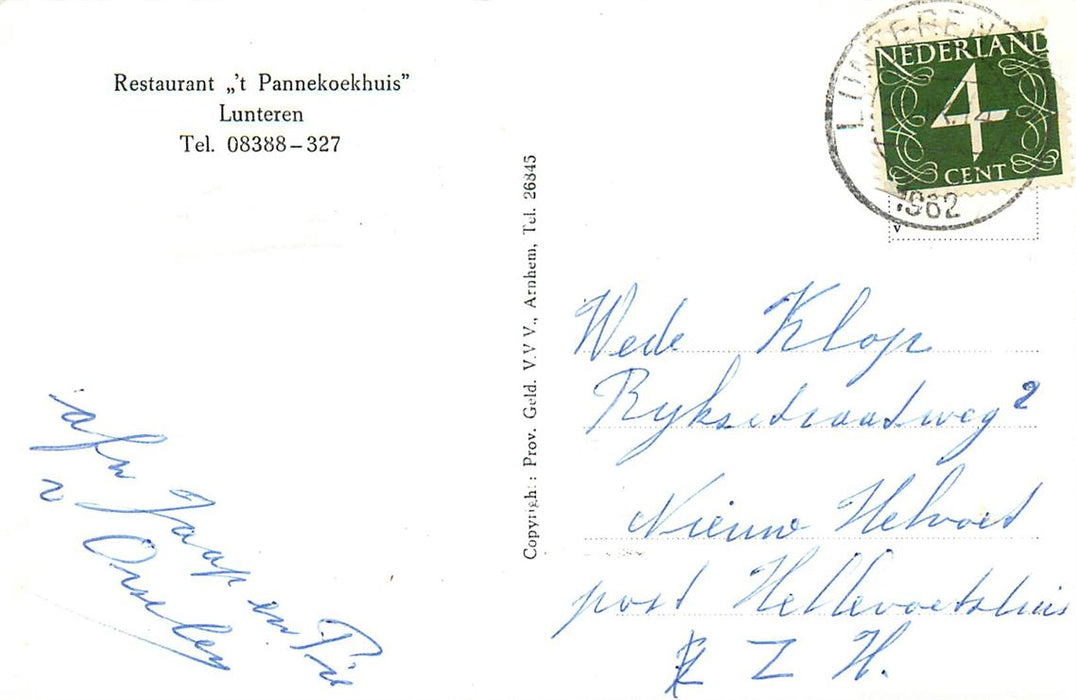 Restaurant „'t Pannekoekhuis”
Lunteren
Tel. 08388-327
Copyright: Prov. Geld. V.V.V., Arnhem, Tel. 26845
LUNTEREN
1962
NEDERLAND
4
CENT
v
Wede Klop
Ryksstraatweg 2
Nieuw Helvoet
post Hellevoetsluis
Z H.
afz Jaap en Pie
v